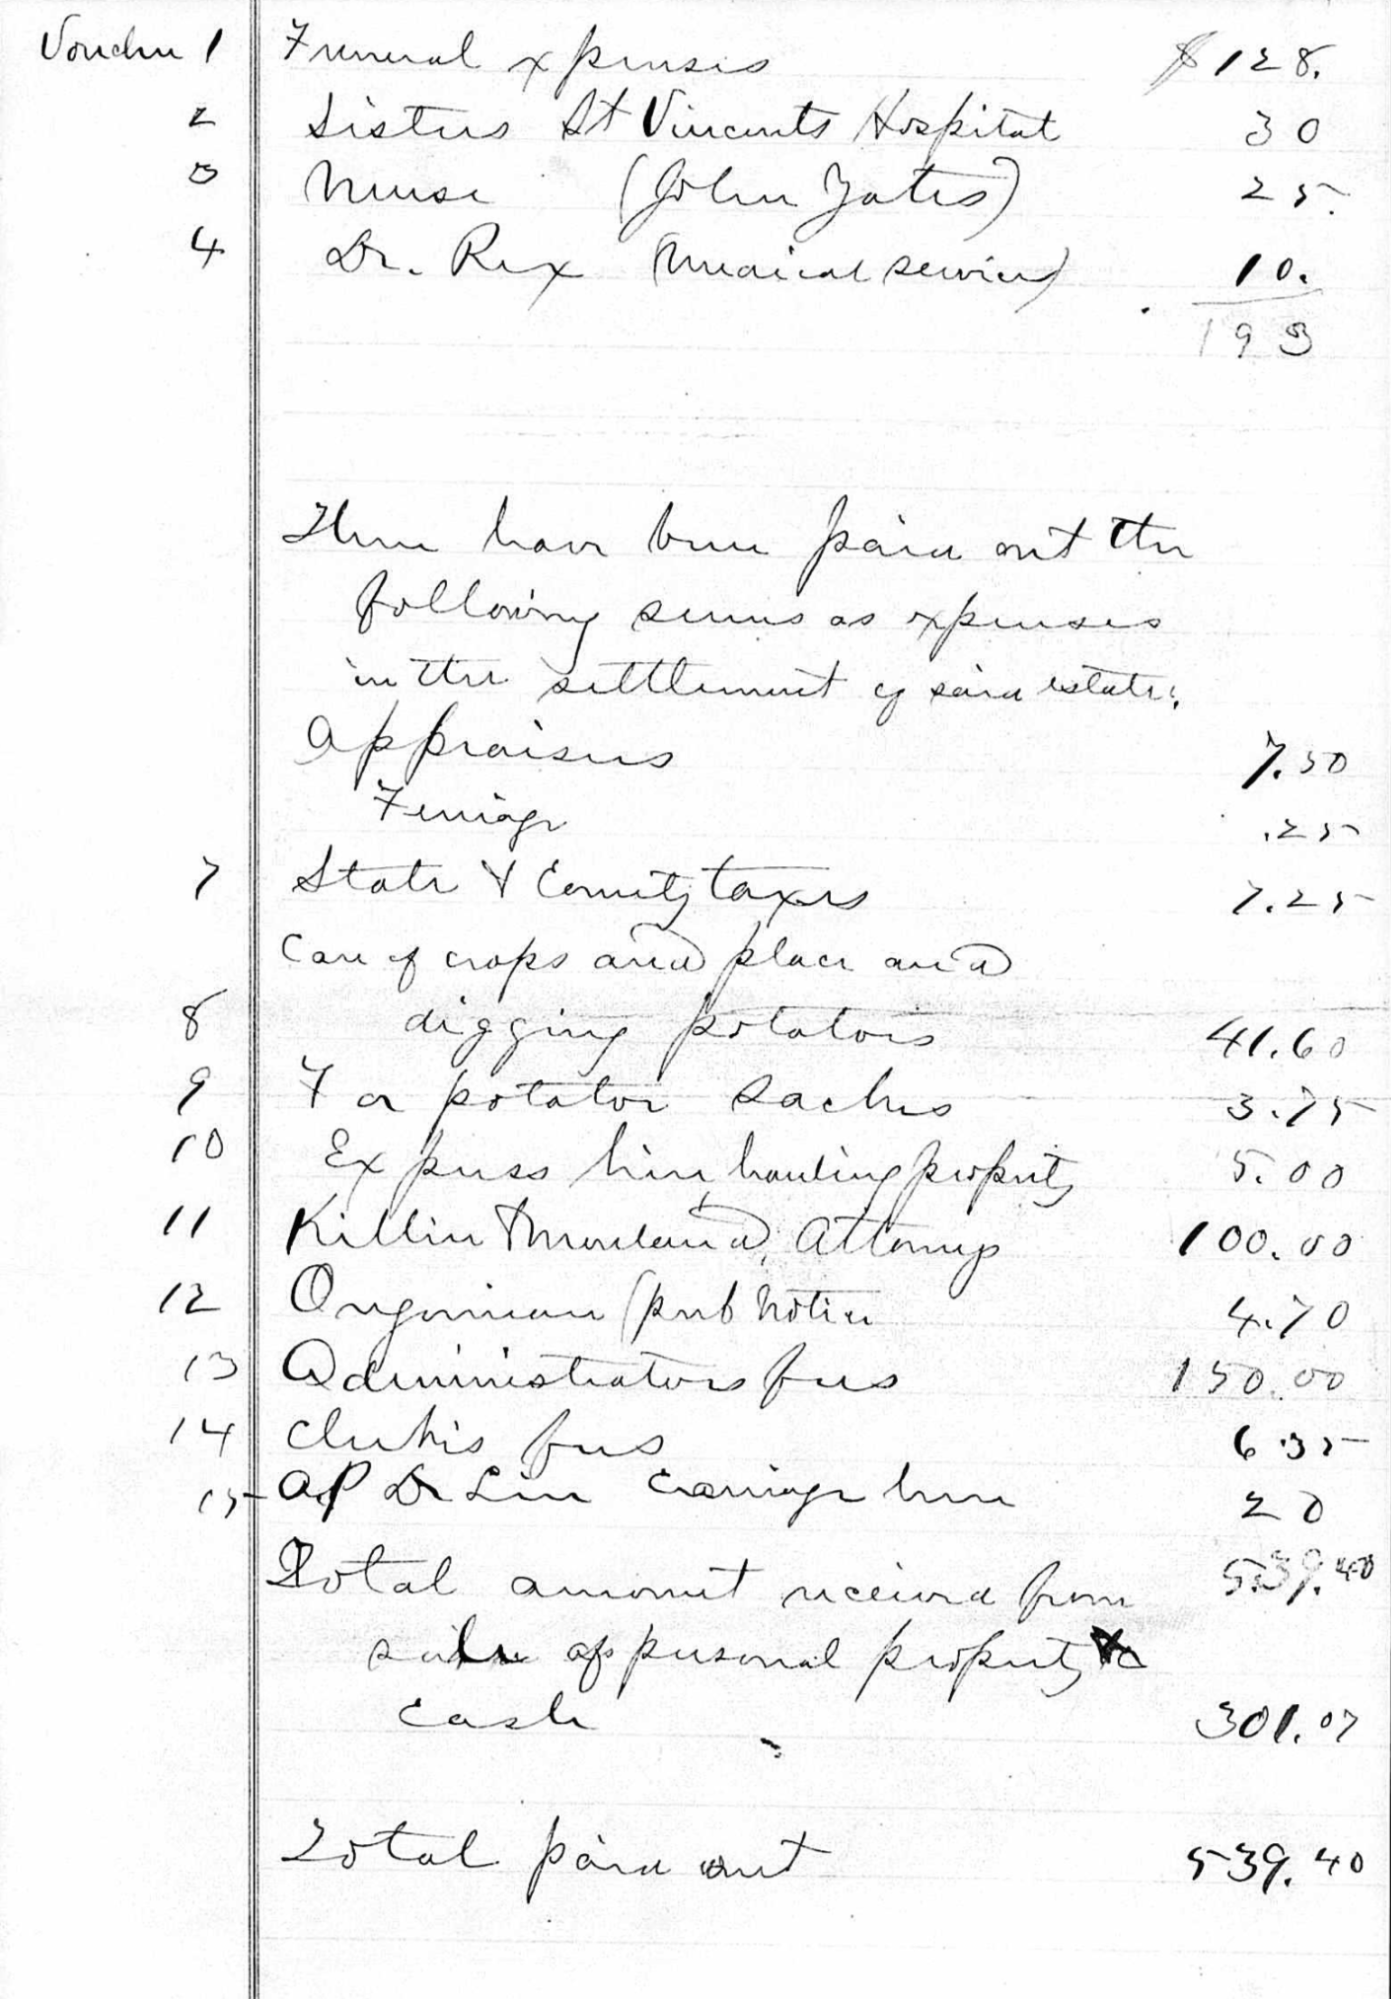 Voucher 1 Funeral expenses $128.
2 Sisters St Vincents Hospital 30
3 Nurse (John Yates) 25.
4 Dr. Rex (Medical services) 10.
193
There have been paid out the
following sums as expenses
in the settlement of said estate:
Appraisers 7.50
Ferriage .25
7 State & County taxes 7.25
Care of crops and place and
8 digging potatoes 41.60
9 For potatoe sacks 3.75
10 Express hire hauling property 5.00
11 Killin & Moreland, Attorneys 100.00
12 Oregonian (pub Notice 4.70
13 Administrators fees 150.00
14 Clerks fees 6.35
15 AP De Lin Carriage hire 20
Total amount received from 539.40
sale of personal property &c
Cash 301.07
Total paid out 539.40